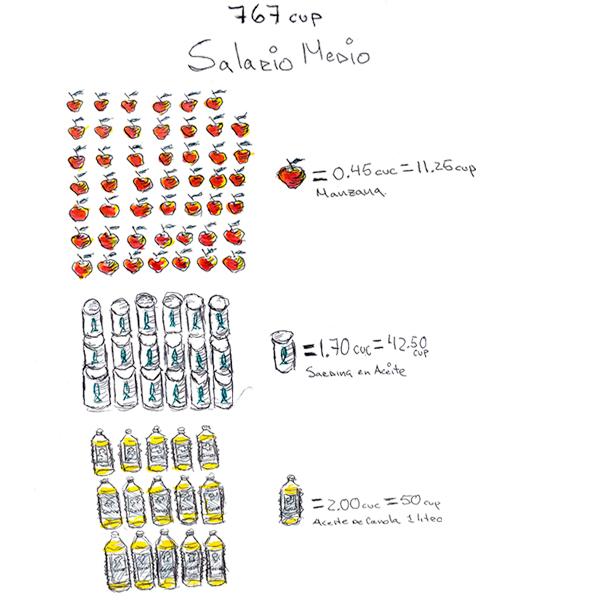 767 cup
Salario Medio
= 0.45 cuc = 11.25 cup
Manzana
= 1.70 cuc = 42.50 cup
Sardina en Aceite
= 2.00 cuc = 50 cup
Aceite de Canola 1 litro